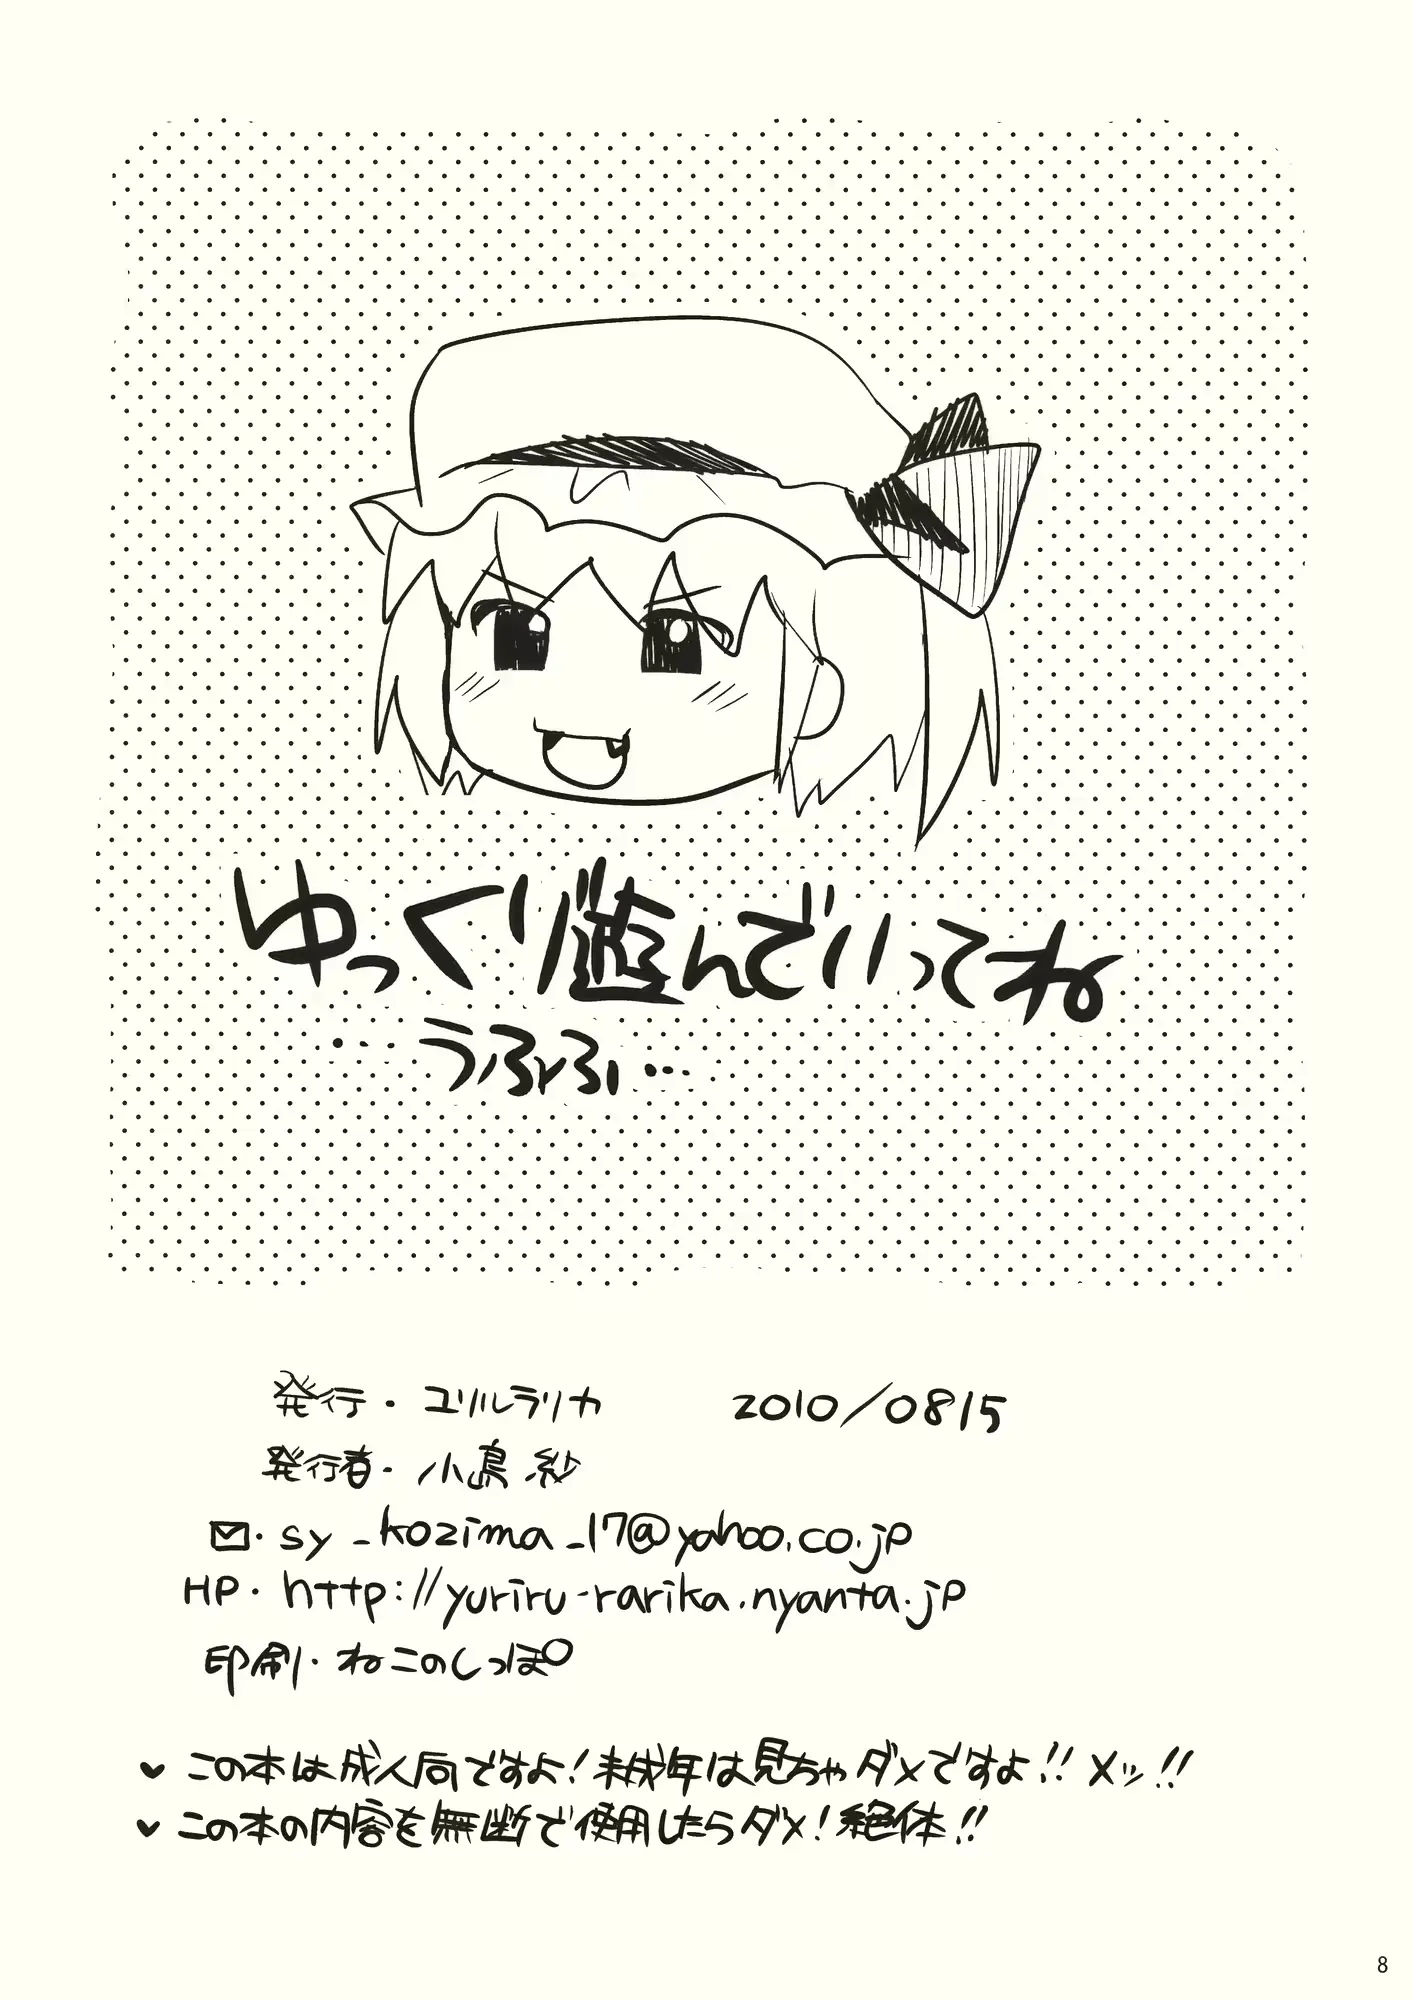 ゆっくり遊んでいってね
…うふふ…
発行・ユリルラリカ 2010/0815
発行者・小島 紗
✉・sy_kozima_17@yahoo.co.jp
HP・http://yuriru-rarika.nyanta.jp
印刷・ねこのしっぽ
♥この本は成人向ですよ！未成年は見ちゃダメですよ!!メッ!!
♥この本の内容を無断で使用したらダメ！絶体!!
8